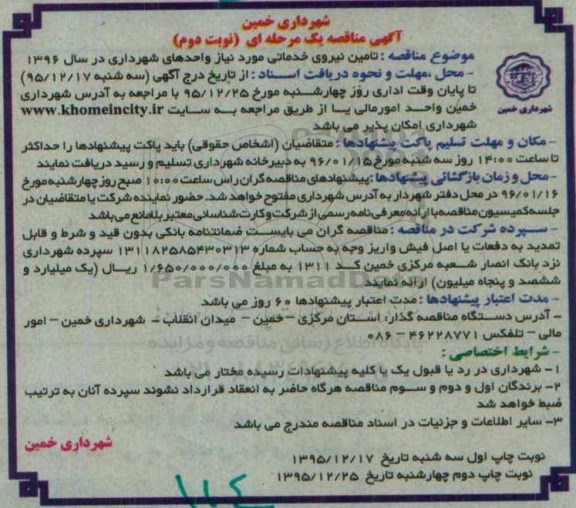 شهرداری خمین
آگهی مناقصه یک مرحله ای (نوبت دوم)
شهرداری خمین
موضوع مناقصه : تامین نیروی خدماتی مورد نیاز واحدهای شهرداری در سال ۱۳۹۶
- محل ،مهلت و نحوه دریافت اسناد : از تاریخ درج آگهی (سه شنبه ۹۵/۱۲/۱۷)
تا پایان وقت اداری روز چهارشنبه مورخ ۹۵/۱۲/۲۵ با مراجعه به آدرس شهرداری
خمین واحد امورمالی یا از طریق مراجعه به سایت www.khomeincity.ir
شهرداری امکان پذیر می باشد
- مکان و مهلت تسلیم پاکت پیشنهادها : متقاضیان (اشخاص حقوقی) باید پاکت پیشنهادها را حداکثر
تا ساعت ۱۴:۰۰ روز سه شنبه مورخ ۹۶/۰۱/۱۵ به دبیرخانه شهرداری تسلیم و رسید دریافت نمایند
- محل و زمان بازگشائی پیشنهادها : پیشنهادهای مناقصه گران راس ساعت ۱۰:۰۰ صبح روز چهارشنبه مورخ
۹۶/۰۱/۱۶ در محل دفتر شهردار به آدرس شهرداری مفتوح خواهد شد. حضور نماینده شرکت یا متقاضیان در
جلسه کمیسیون مناقصه با ارائه معرفی نامه رسمی از شرکت و کارت شناسائی معتبر بلامانع می باشد
- سپرده شرکت در مناقصه : مناقصه گران می بایست ضمانتنامه بانکی بدون قید و شرط و قابل
تمدید به دفعات یا اصل فیش واریز وجه به حساب شماره ۱۳۱۱۸۲۵۸۵۴۳۰۳۱۳ سپرده شهرداری
نزد بانک انصار شعبه مرکزی خمین کد ۱۳۱۱ به مبلغ ۱/۶۵۰/۰۰۰/۰۰۰ ریال (یک میلیارد و
ششصد و پنجاه میلیون) ارائه نمایند
- مدت اعتبار پیشنهادها : مدت اعتبار پیشنهادها ۶۰ روز می باشد
- آدرس دستگاه مناقصه گذار: استان مرکزی – خمین – میدان انقلاب – شهرداری خمین – امور
مالی – تلفکس ۴۶۲۲۸۷۷۱ – ۰۸۶
- شرایط اختصاصی :
۱- شهرداری در رد یا قبول یک یا کلیه پیشنهادات رسیده مختار می باشد
۲- برندگان اول و دوم و سوم مناقصه هرگاه حاضر به انعقاد قرارداد نشوند سپرده آنان به ترتیب
ضبط خواهد شد
۳- سایر اطلاعات و جزئیات در اسناد مناقصه مندرج می باشد
شهرداری خمین
نوبت چاپ اول سه شنبه تاریخ ۱۳۹۵/۱۲/۱۷
نوبت چاپ دوم چهارشنبه تاریخ ۱۳۹۵/۱۲/۲۵
ParsNamadData